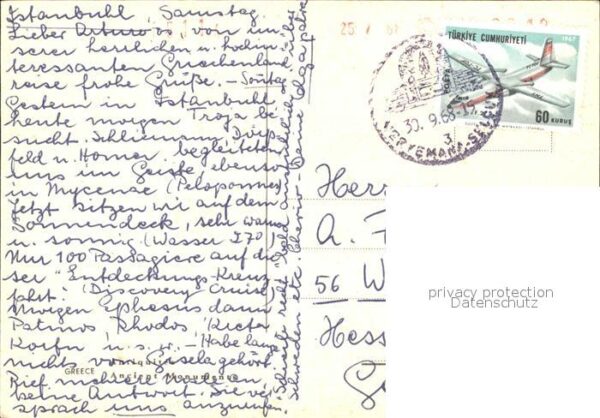 Istanbuhl Samstag.
Lieber Arturo von un-
serer herrlichen u. hochin-
teressanten Griechenland
reise frohe Grüße. - Sontag
Gestern in Istanbuhl,
heute morgen Troja be
sucht. Schliemann Dörp
feld u. Homer begleiteten
uns im Geiste ebenso
in Mycenae (Peloponnes)
Jetzt sitzen wir auf dem
Sonnendeck, sehr warm
u. sonnig (Wasser 270)
Nur 100 Passagiere auf die
ser "Entdeckungs-Kreuz
fahrt. (Discovery Cruise)
Morgen ephesus dann
Patmos Rhodos Kreta
Korfu u. s. w. - Habe lang
nichts von Gisela gehört
Rief mehrere
keine Antwort. Sie ver
sprach uns anzurufen.
GREECE
Ancient Monuments
Schweden etc.
Herr
A.
56 W
Hess
TÜRKİYE CUMHURİYETİ
1967
60 KURUŞ
30.9.68
MERYEMANA-SELÇUK
privacy protection
Datenschutz